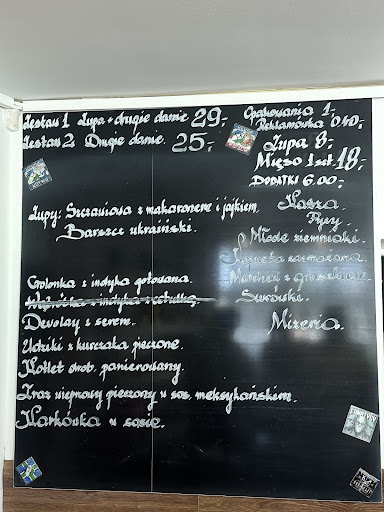 Zestaw 1 Zupa + drugie danie 29,-
Zestaw 2 Drugie danie. 25,-
Opakowania 1,-
Reklamówka 0,40,-
Zupa 8,-
Mięso 1 szt. 18,-
DODATKI 6.00,-
Zupy: Szczawiowa z makaronem i jajkiem.
Barszcz ukraiński.
Kasza
Ryż
Młode ziemniaki.
Kapusta zasmażana
Marchew z groszkiem.
Surówki.
Mizeria.
Golonka z indyka gotowana.
z indyka
Devolay z serem.
Udziki z kurczaka pieczone.
Kotlet drob. panierowany.
Zraz wieprzowy pieczony w sos. meksykańskim.
Karkówka w sosie.